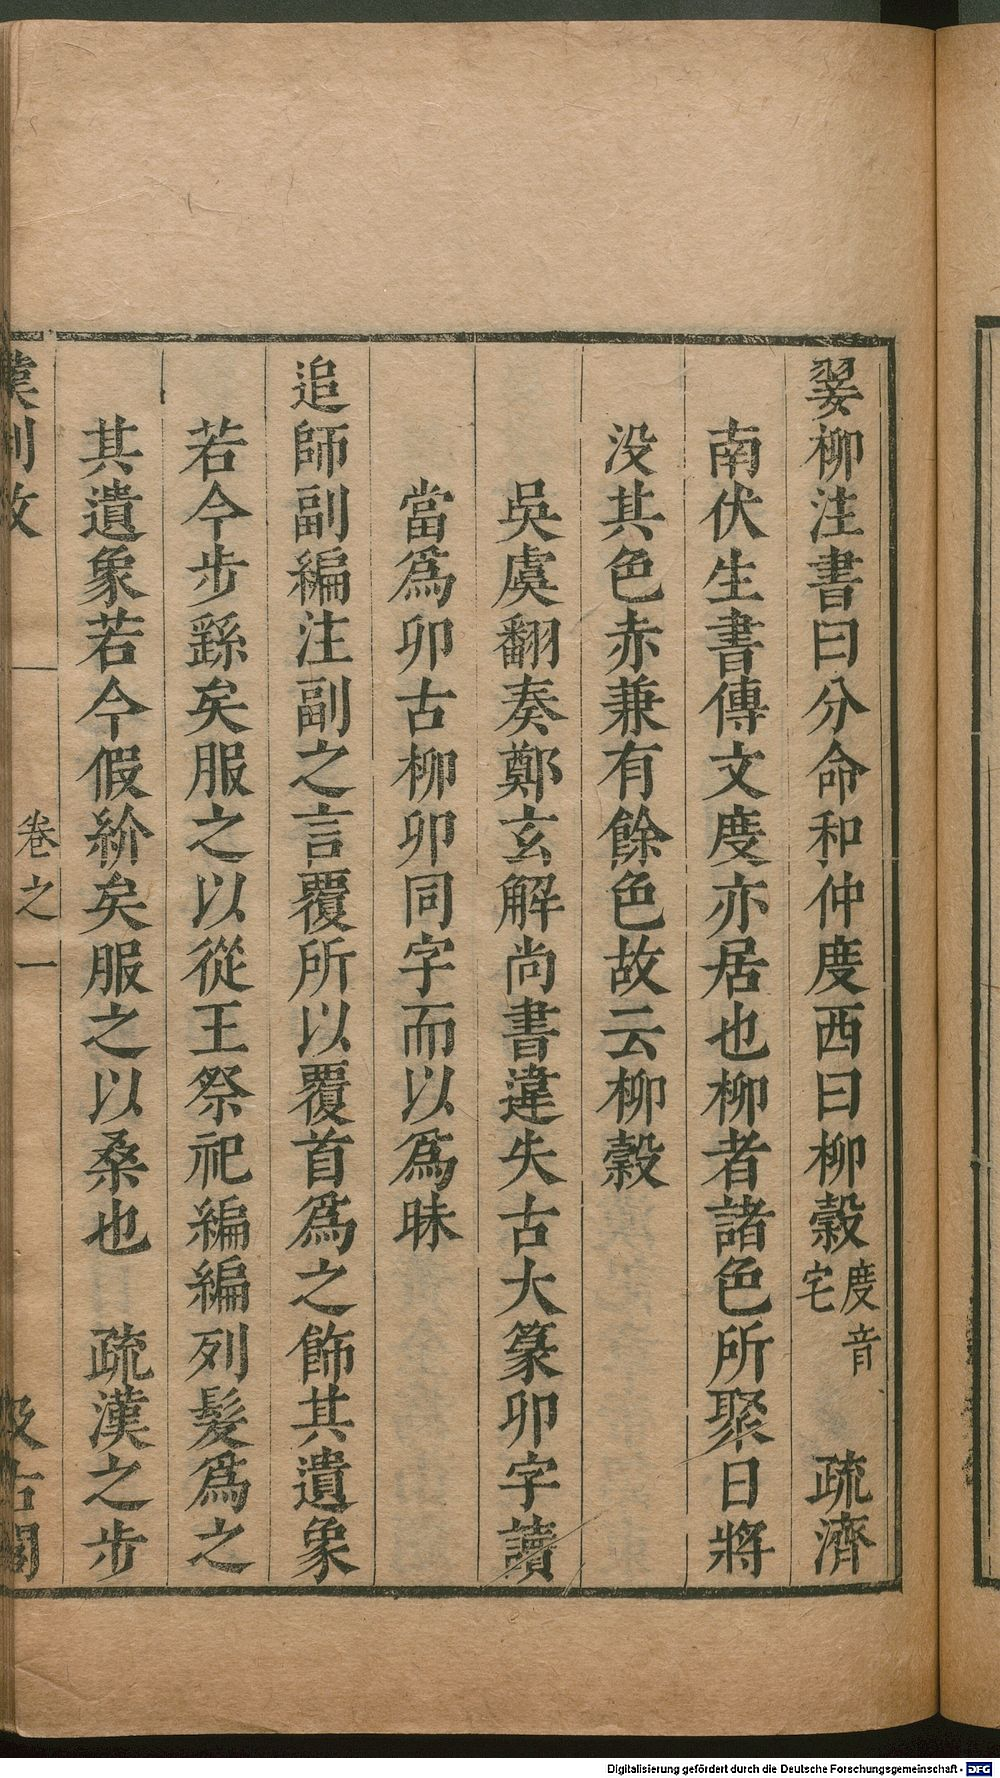 翣柳注書曰分命和仲度西曰柳穀度音宅 疏濟
南伏生書傳文度亦居也柳者諸色所聚日將
没其色赤兼有餘色故云柳穀
吳虞翻奏鄭玄解尚書違失古大篆卯字讀
當爲卯古柳卯同字而以爲昧
追師副編注副之言覆所以覆首爲之飾其遺象
若今步繇矣服之以從王祭祀編編列髮爲之
其遺象若今假紒矣服之以桑也 疏漢之步
漢制攷 卷之一 汲古閣
Digitalisierung gefördert durch die Deutsche Forschungsgemeinschaft - DFG